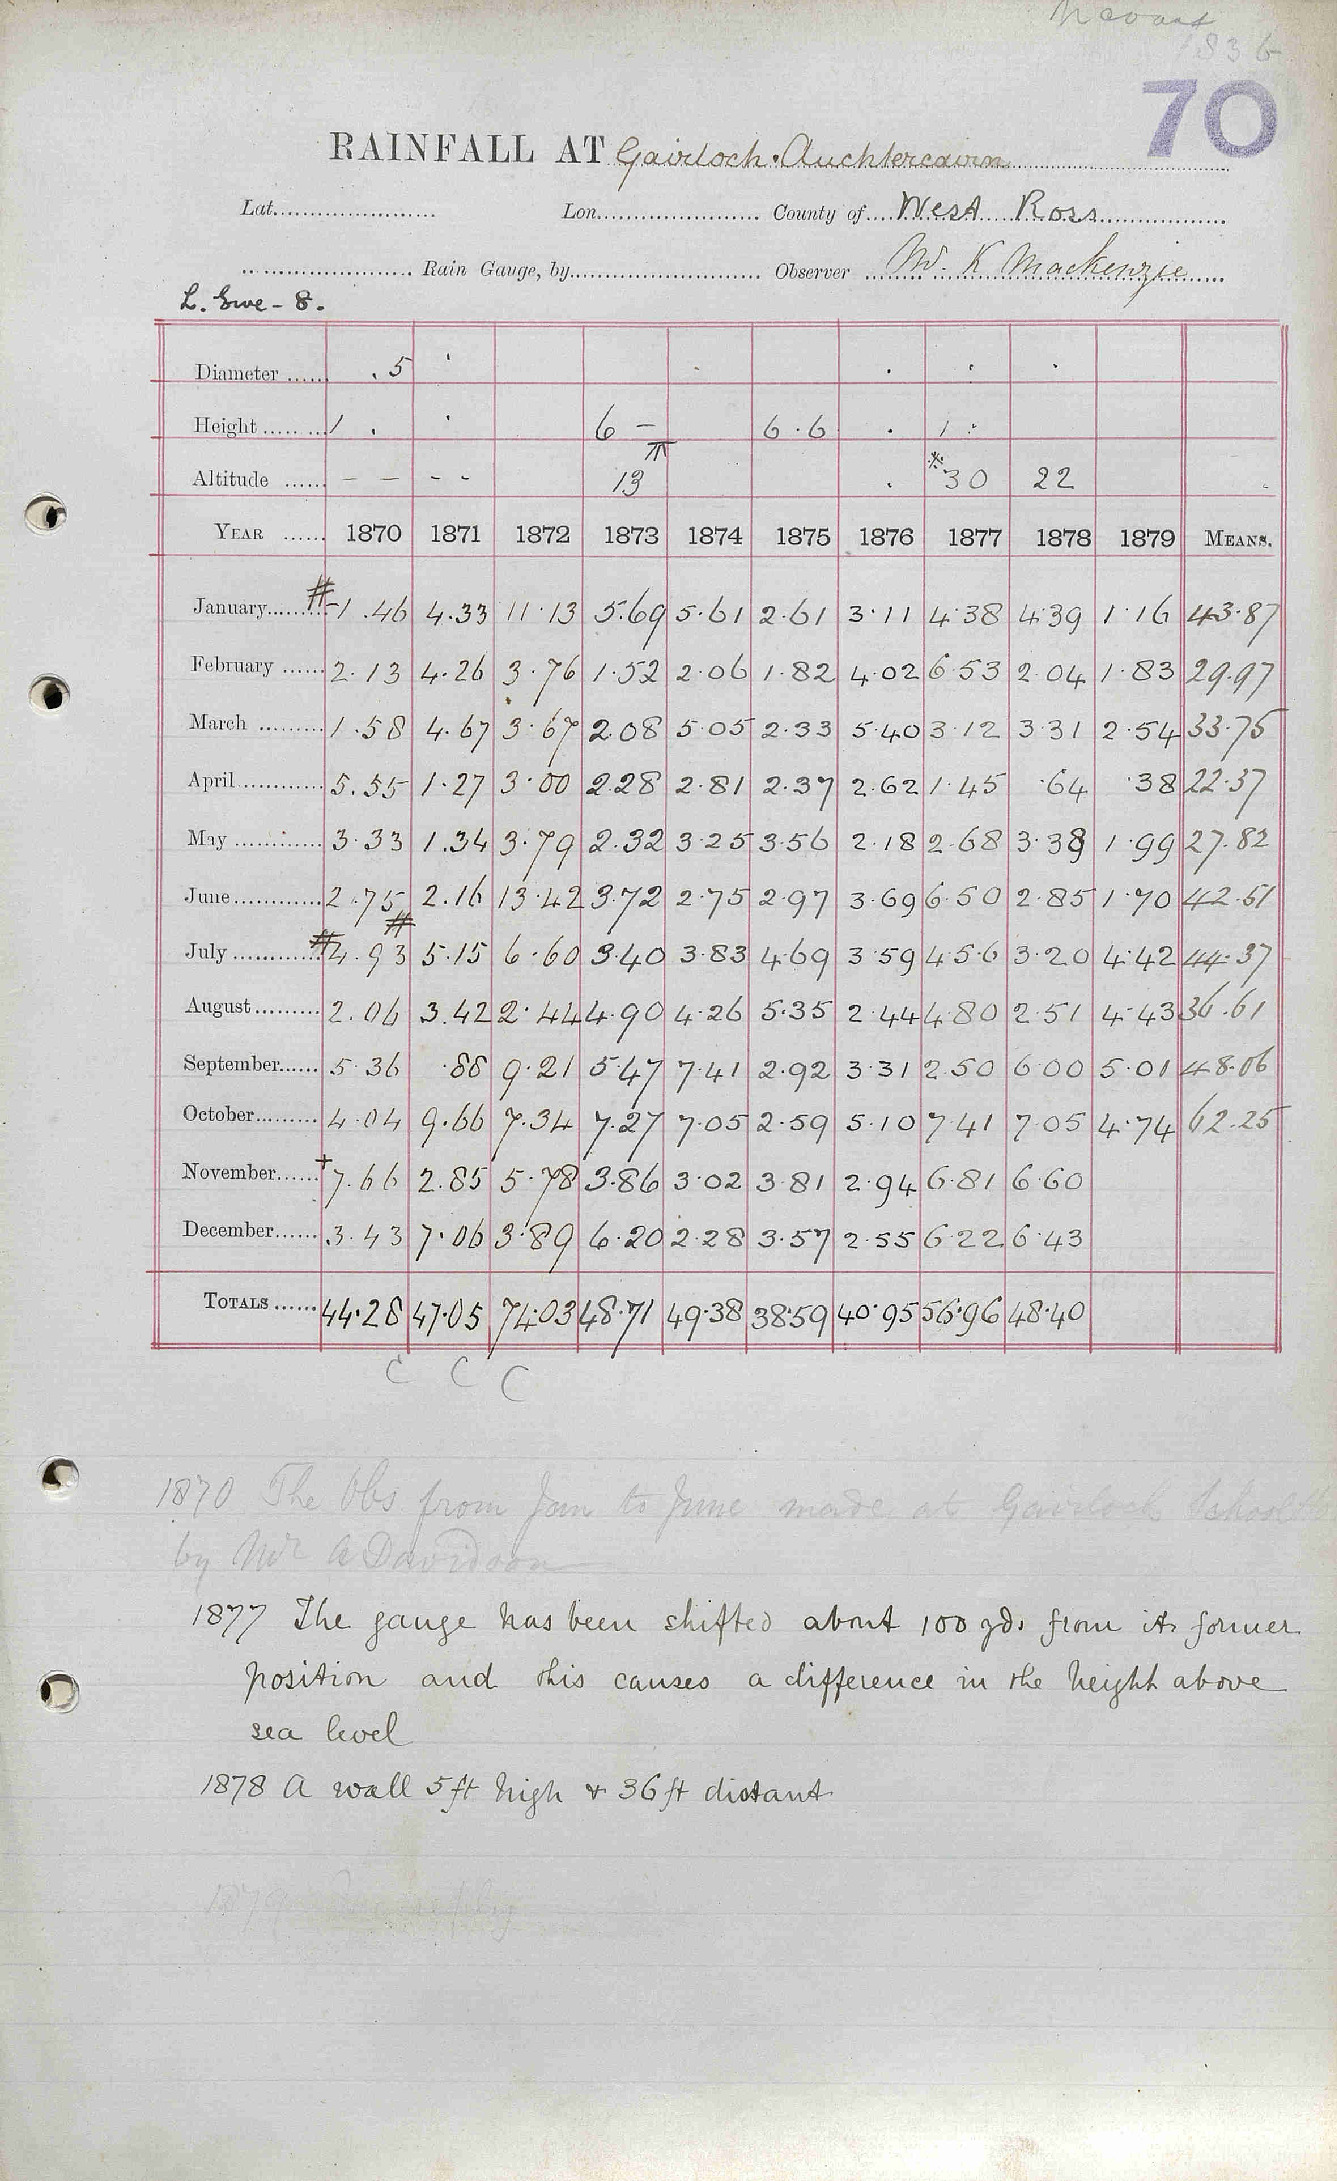 70
RAINFALL AT Gairloch . Auchtercairn
Lat. Lon. County of West Ross
Rain Gauge, by Observer W. K Mackenzie
L. Ewe - 8.
Diameter .5
Height 1 . 6 - 6.6 . 1 :
Altitude - - - - 13 . *30 22
YEAR 1870 1871 1872 1873 1874 1875 1876 1877 1878 1879 MEANS.
January # 1.46 4.33 11.13 5.69 5.61 2.61 3.11 4.38 4.39 1.16 43.87
February 2.13 4.26 3.76 1.52 2.06 1.82 4.02 6.53 2.04 1.83 29.97
March 1.58 4.67 3.67 2.08 5.05 2.33 5.40 3.12 3.31 2.54 33.75
April 5.55 1.27 3.00 2.28 2.81 2.37 2.62 1.45 .64 .38 22.37
May 3.33 1.34 3.79 2.32 3.25 3.56 2.18 2.68 3.38 1.99 27.82
June 2.75 # 2.16 13.42 3.72 2.75 2.97 3.69 6.50 2.85 1.70 42.51
July # 4.93 5.15 6.60 3.40 3.83 4.69 3.59 4.56 3.20 4.42 44.37
August 2.06 3.42 2.44 4.90 4.26 5.35 2.44 4.80 2.51 4.43 36.61
September 5.36 .88 9.21 5.47 7.41 2.92 3.31 2.50 6.00 5.01 48.06
October 4.04 9.66 7.34 7.27 7.05 2.59 5.10 7.41 7.05 4.74 62.25
November + 7.66 2.85 5.78 3.86 3.02 3.81 2.94 6.81 6.60
December 3.43 7.06 3.89 6.20 2.28 3.57 2.55 6.22 6.43
TOTALS 44.28 47.05 74.03 48.71 49.38 38.59 40.95 56.96 48.40
C C C
1870 The Obs from Jan to June made at Gairloch School
by Mr A Davidson
1877 The gauge has been shifted about 100 yds from its former
position and this causes a difference in the height above
sea level
1878 A wall 5 ft high & 36 ft distant
1879